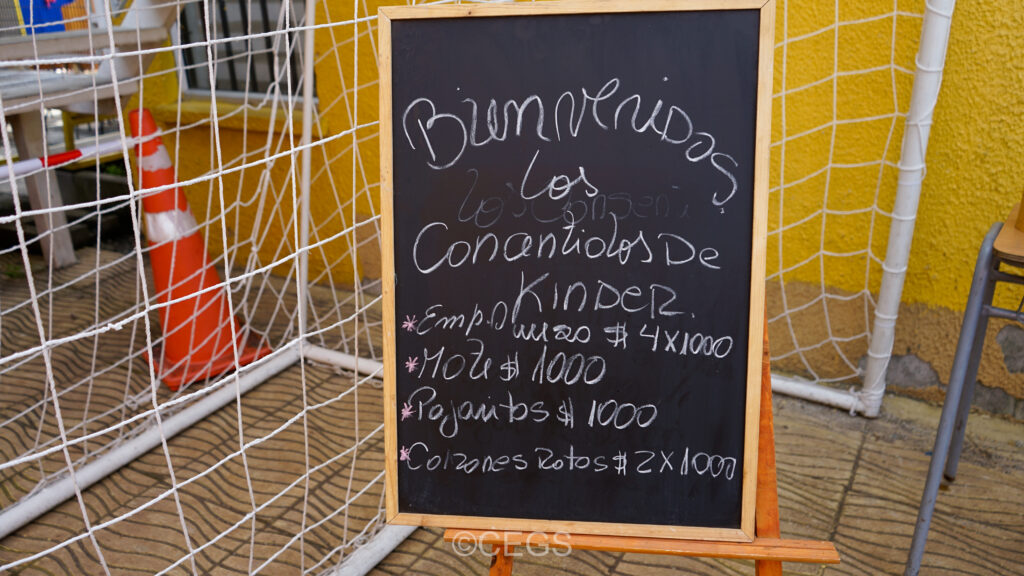 Bienvenidos
los
Los Conseni
Conantidos De
Kinder.
* Emp.O unao $ 4x1000
* Mote $ 1000
* Pajaritos $ 1000
* Calzones Rotos $ 2x1000
©CEGS